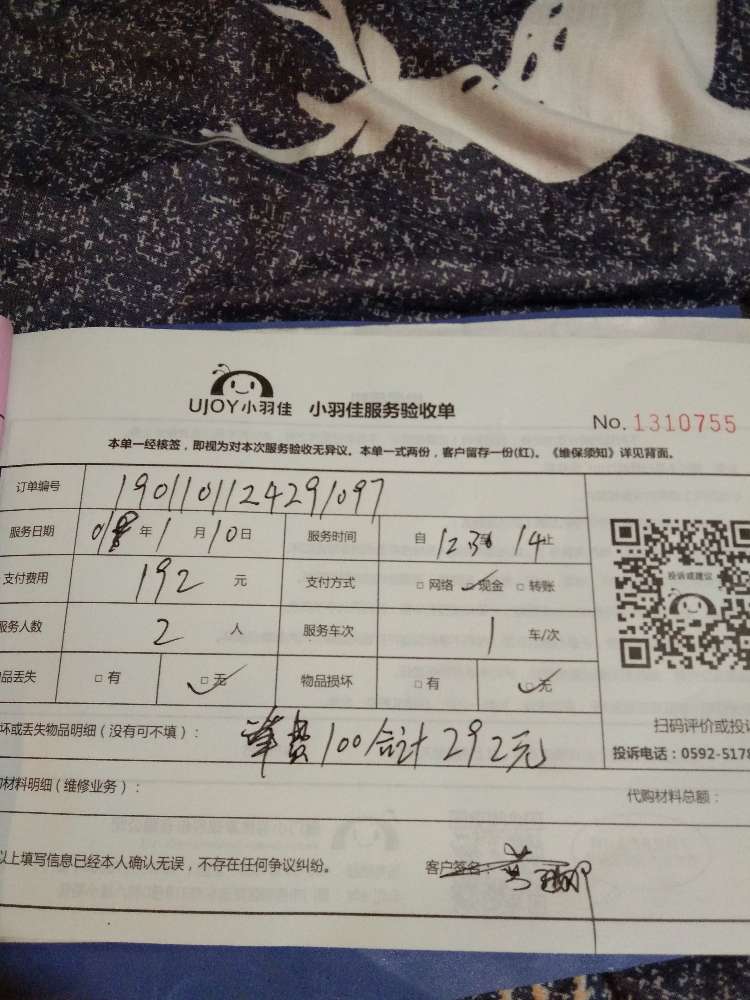 UJOY小羽佳 小羽佳服务验收单
No. 1310755
本单一经核签，即视为对本次服务验收无异议。本单一式两份，客户留存一份(红)。《维保须知》详见背面。
订单编号 1901101124291097
服务日期 年 1 月 10 日 服务时间 自 12 30 至 14 止
支付费用 192 元 支付方式 □ 网络 □ 现金 □ 转账
服务人数 2 人 服务车次 1 车/次
品丢失 □ 有 □ 无 物品损坏 □ 有 □ 无
投诉或建议
坏或丢失物品明细（没有可不填）： 费100合计292元
扫码评价或投
投诉电话：0592-5178
材料明细（维修业务）： 代购材料总额：
以上填写信息已经本人确认无误，不存在任何争议纠纷。 客户签名：